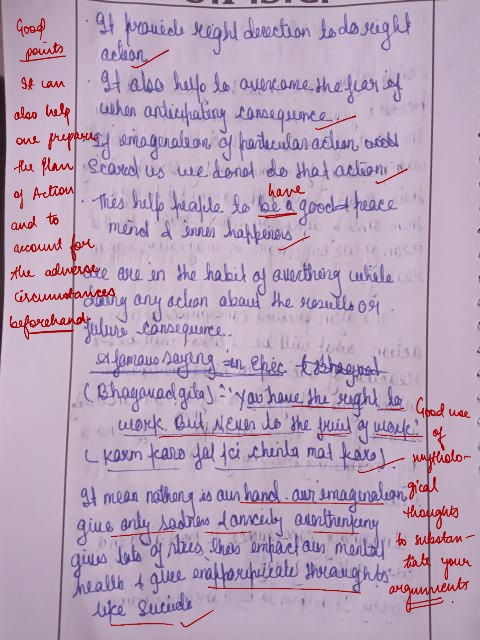 Good
points
It can
also help
one prepare
the plan
of Action
and to
account for
the adverse
circumstances
beforehand.
· It provide right direction to do right
action
· It also help to overcome the fear of
when anticipating consequence.
If imagination of particular action
scared us we donot do that action.
have
· This help people to be a good peace
mind & inner happiness
We are in the habit of while
doing any action about the results or
future consequence.
A famous saying in Epic
(Bhagavad gita) :- "you have the right to
work. But Never to the fruit of work."
(Karm karo fal ki chinta mat karo)
Good use
of
mytholo-
gical
thoughts
to substan-
tiate your
arguments
It mean nothing is our hand. our imagination
give only sadness & anxiety overthinking
gives lots of stress, this our mental
health & give thoughts
like suicide